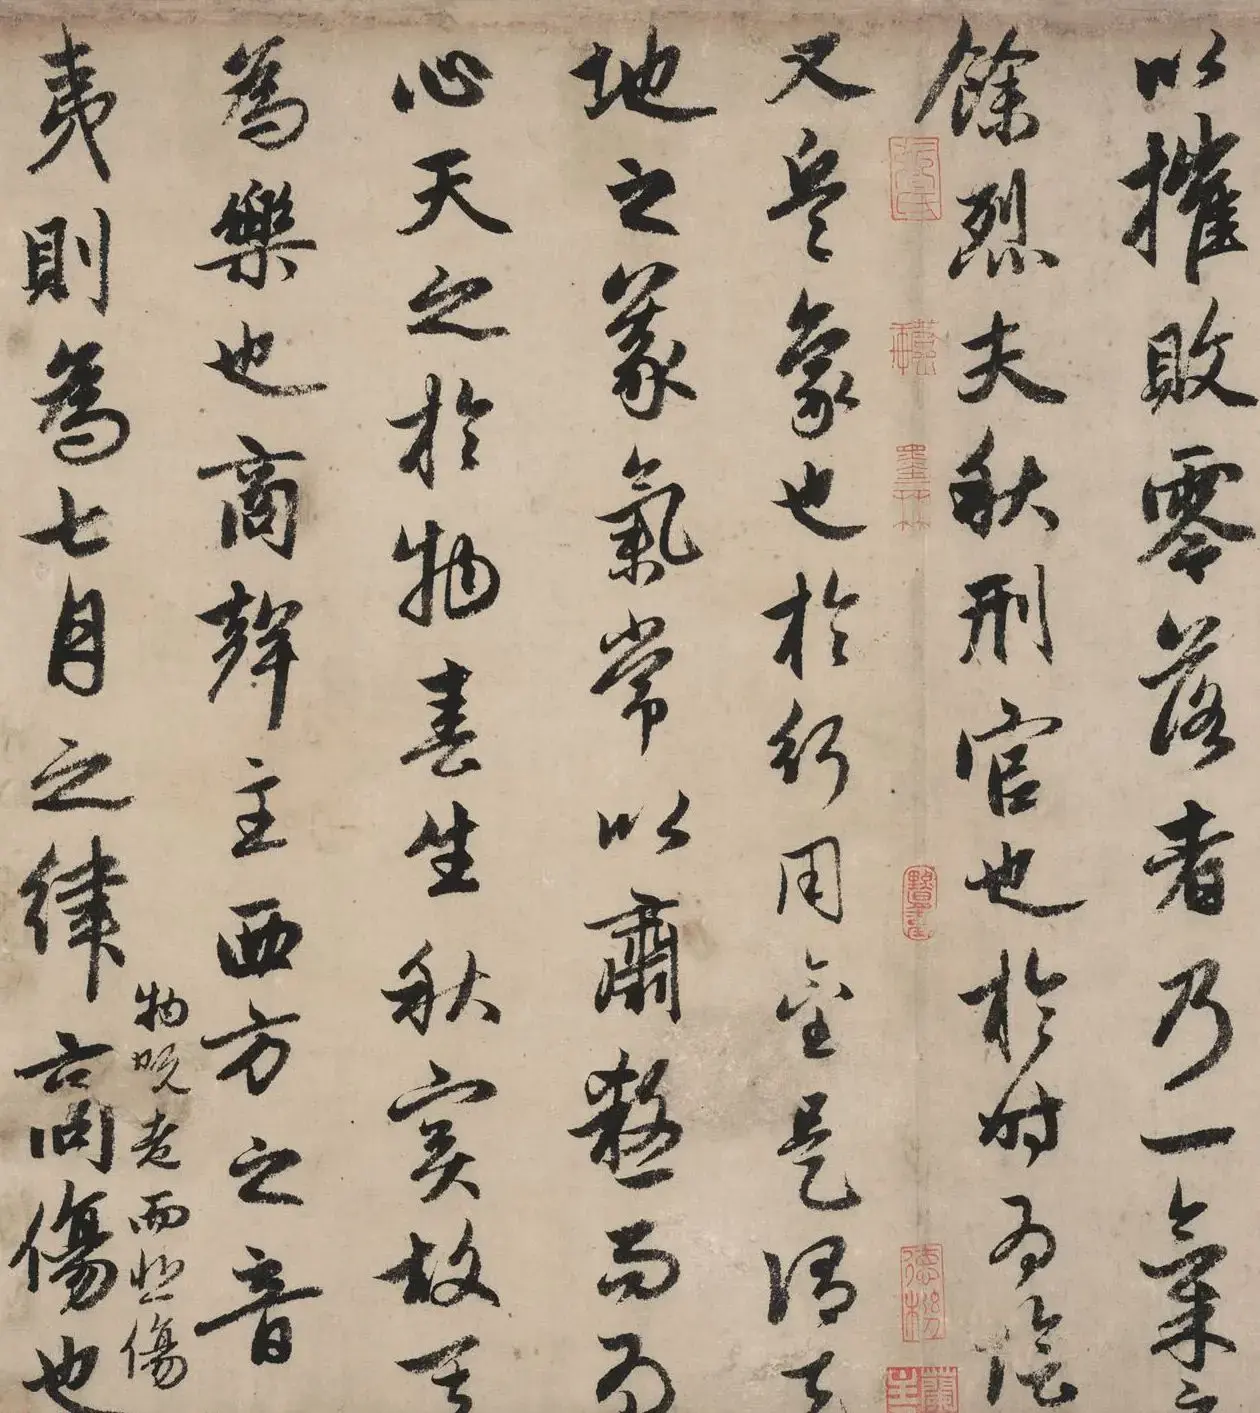 以摧敗零落者乃一氣之
餘烈夫秋刑官也於時為陰
墨林
又兵象也於行用金是謂天
地之義氣常以肅殺而為
心天之於物春生秋實故其
為樂也商聲主西方之音
夷則為七月之律商傷也
物既老而悲傷